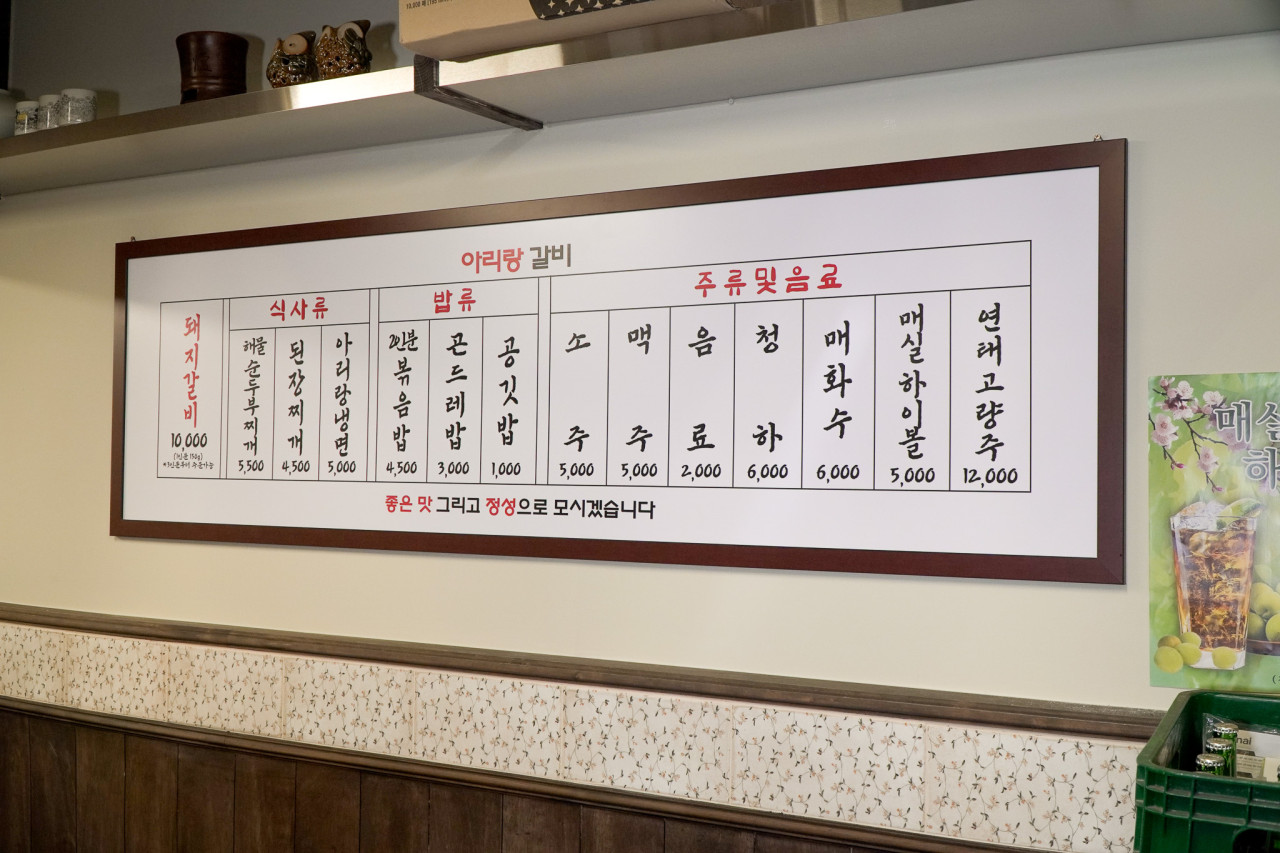 아리랑 갈비
돼지갈비
10,000
(1인분 150g)
*3인분부터 주문가능
식사류
해물
순두부찌개
5,500
된장찌개
4,500
아리랑냉면
5,000
밥류
2인분
볶음밥
4,500
곤드레밥
3,000
공깃밥
1,000
주류및음료
소주
5,000
맥주
5,000
음료
2,000
청하
6,000
매화수
6,000
매실하이볼
5,000
연태고량주
12,000
좋은 맛 그리고 정성으로 모시겠습니다
매실
하